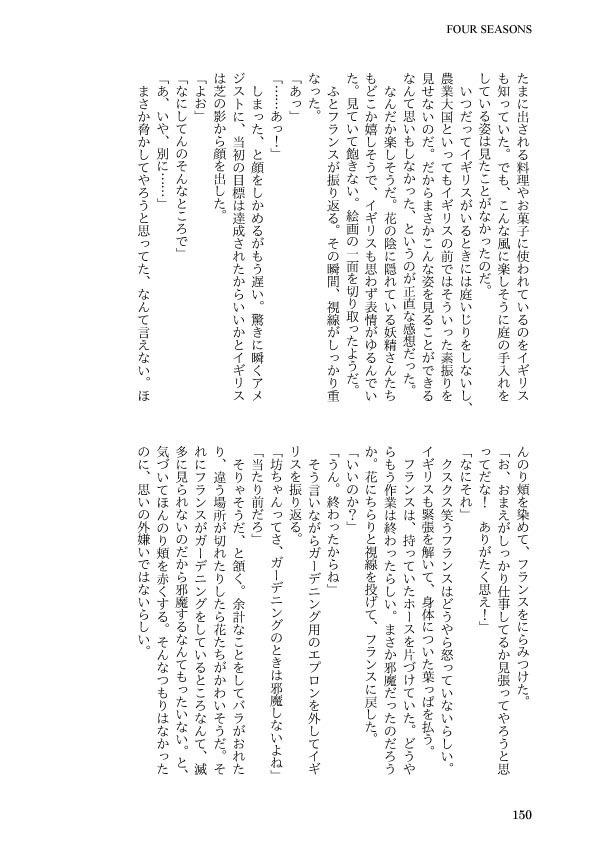 FOUR SEASONS
たまに出される料理やお菓子に使われているのをイギリス
も知っていた。でも、こんな風に楽しそうに庭の手入れを
している姿は見たことがなかったのだ。
　いつだってイギリスがいるときには庭いじりをしないし、
農業大国といってもイギリスの前ではそういった素振りを
見せないのだ。だからまさかこんな姿を見ることができる
なんて思いもしなかった、というのが正直な感想だった。
　なんだか楽しそうだ。花の陰に隠れている妖精さんたち
もどこか嬉しそうで、イギリスも思わず表情がゆるんでい
た。見ていて飽きない。絵画の一面を切り取ったようだ。
　ふとフランスが振り返る。その瞬間、視線がしっかり重
なった。
「あっ」
「……あっ！」
　しまった、と顔をしかめるがもう遅い。驚きに瞬くアメ
ジストに、当初の目標は達成されたからいいかとイギリス
は芝の影から顔を出した。
「よお」
「なにしてんのそんなところで」
「あ、いや、別に……」
　まさか脅かしてやろうと思ってた、なんて言えない。ほ
んのり頬を染めて、フランスをにらみつけた。
「お、おまえがしっかり仕事してるか見張ってやろうと思
ってだな！　ありがたく思え！」
「なにそれ」
　クスクス笑うフランスはどうやら怒っていないらしい。
イギリスも緊張を解いて、身体についた葉っぱを払う。
　フランスは、持っていたホースを片づけていた。どうや
らもう作業は終わったらしい。まさか邪魔だったのだろう
か。花にちらりと視線を投げて、フランスに戻した。
「いいのか？」
「うん。終わったからね」
　そう言いながらガーデニング用のエプロンを外してイギ
リスを振り返る。
「坊ちゃんってさ、ガーデニングのときは邪魔しないよね」
「当たり前だろ」
　そりゃそうだ、と頷く。余計なことをしてバラがおれた
り、違う場所が切れたりしたら花たちがかわいそうだ。そ
れにフランスがガーデニングをしているところなんて、滅
多に見られないのだから邪魔するなんてもったいない。と、
気づいてほんのり頬を赤くする。そんなつもりはなかった
のに、思いの外嫌いではないらしい。
150